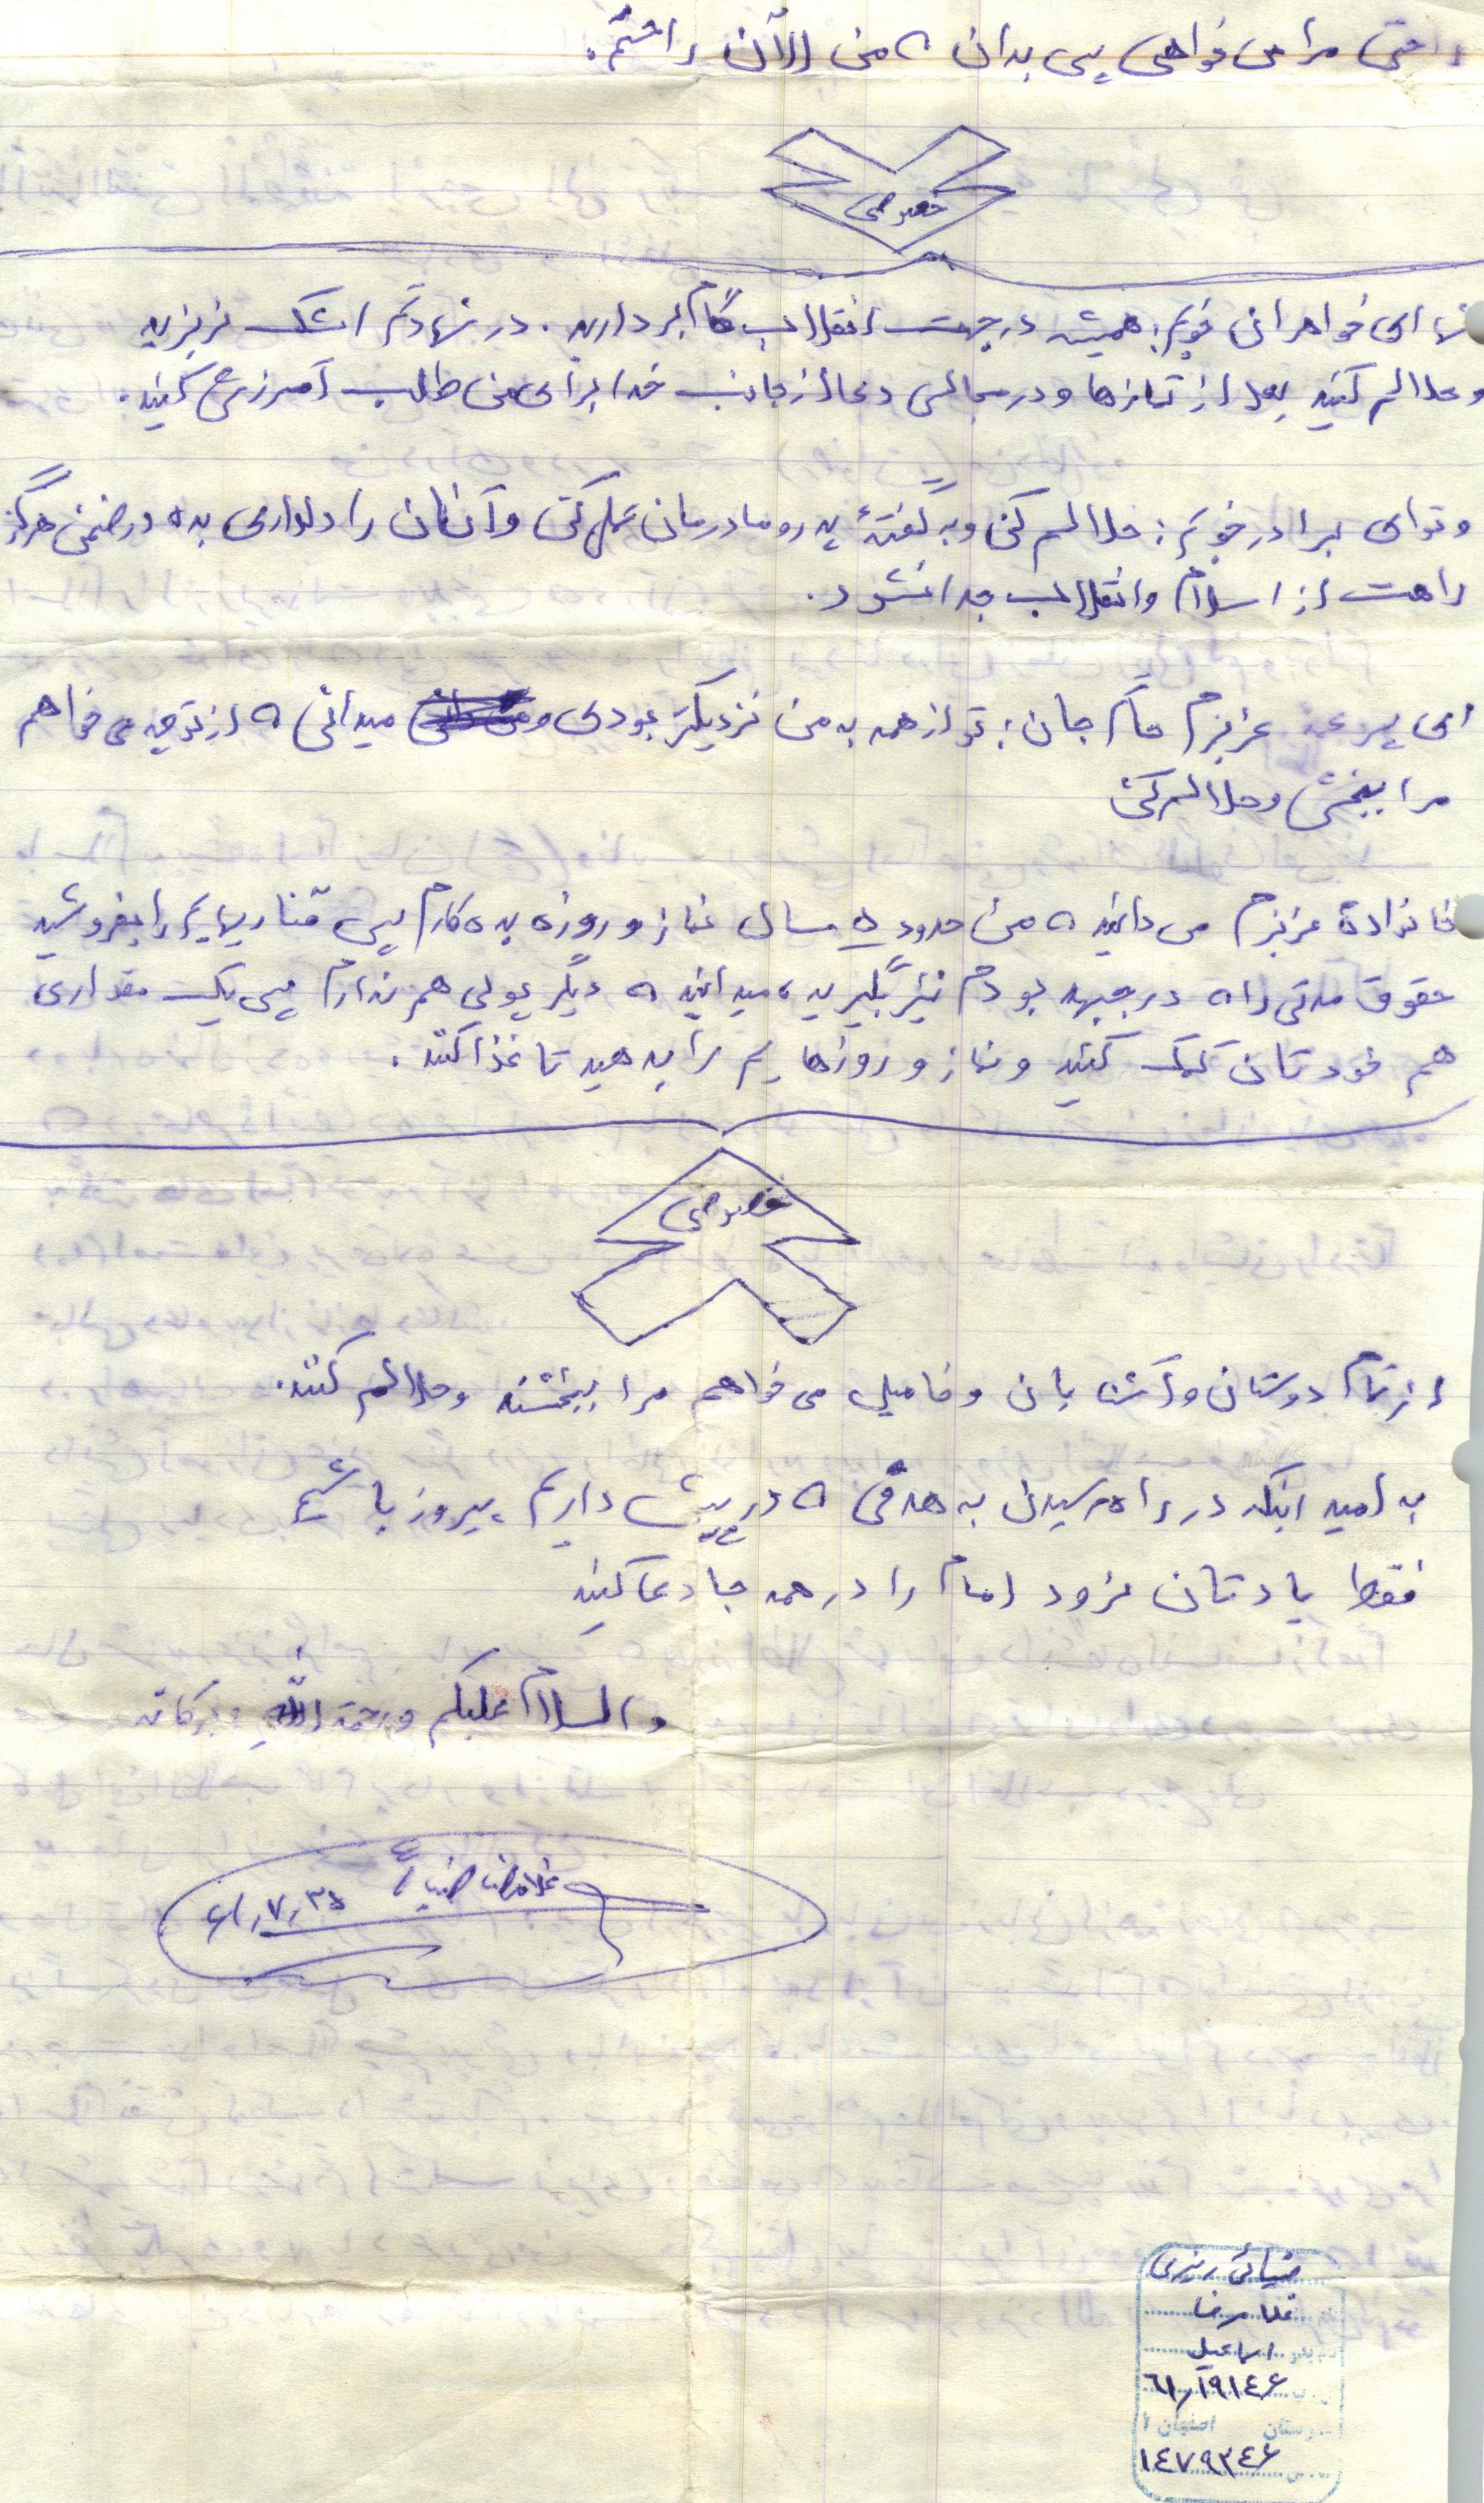 راحتی مرا می خواهی پس بدان که من در آن راحتم.
خصوصی
شما ای خواهرانی خوبم: همیشه در جهت انقلاب گام بردارید. در شهادتم اشک نریزید
و حلالم کنید بعد از نمازها و در مجالس دعا از جانب خدا برای من طلب آمرزش کنید.
و تو ای برادر خوبم: حلالم کن و به گفتهٔ پدر و مادرمان عمل کن و آنان را دلداری بده در ضمن هرگز
راهت از اسلام و انقلاب جدا نشود.
ای پسر عمه عزیزم جان: تو از همه به من نزدیکتر بودی و میدانی که از تو چه می خواهم
مرا ببخش و حلالم کن
خانوادهٔ عزیزم می دانید که من حدود ۵ سال نماز و روزه بدهکارم پس قناریهایم را بفروشید
حقوق مدتی را که در جبهه بودم نیز بگیرید، میدانید که دیگر پولی هم ندارم پس یک مقداری
هم خودتان کمک کنید و نماز و روزهایم را بدهید تا غذا کنند.
خصوصی
از تمام دوستان و آشنایان و فامیل می خواهم مرا ببخشند و حلالم کنند.
به امید اینکه در راه رسیدن به هدفی که در پیش داریم پیروز باشیم
فقط یادتان نرود امام را در همه جا دعا کنید
والسلام علیکم و رحمة الله و برکاته
غلامرضا ضیائی ۶۱٫۷٫۳۰
ضیائی ریزی
غلامرضا
اسماعیل
۶۱٫۱۹۱۴۶
اصفهان
۱۴۷۹۳۴۶